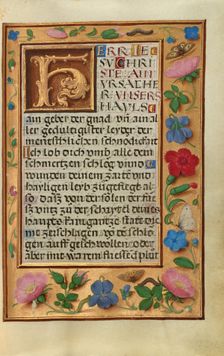 HERR IE
SV CHRI
STE AIN
VRSACHE
R VNSERS
HAYLS
ain geber der gnad vn ain al
ler gedultigüster leyder der
menschlichen schnödichait
Ich lob dich vnd alle dein
schmertzen schleg vnd
wunden deinem zarte vnd
hayligen leyb zügefiegt al
so das von der solen der füs
vntz zu der schaytel deines
haupts kain gantze stat die
nit zerschlagen vō schleg
ongen auff geschwollen oder
mit warem fliessend plut